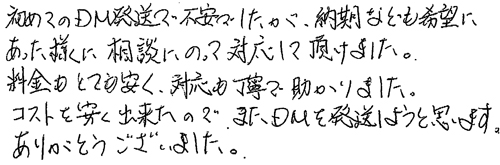 初めてのDM発送で不安でしたが、納期なども希望に
あった様に相談にのって対応して頂けました。
料金もとても安く、対応も丁寧で助かりました。
コストを安く出来たので、また、DMを発送しようと思います。
ありがとうございました。